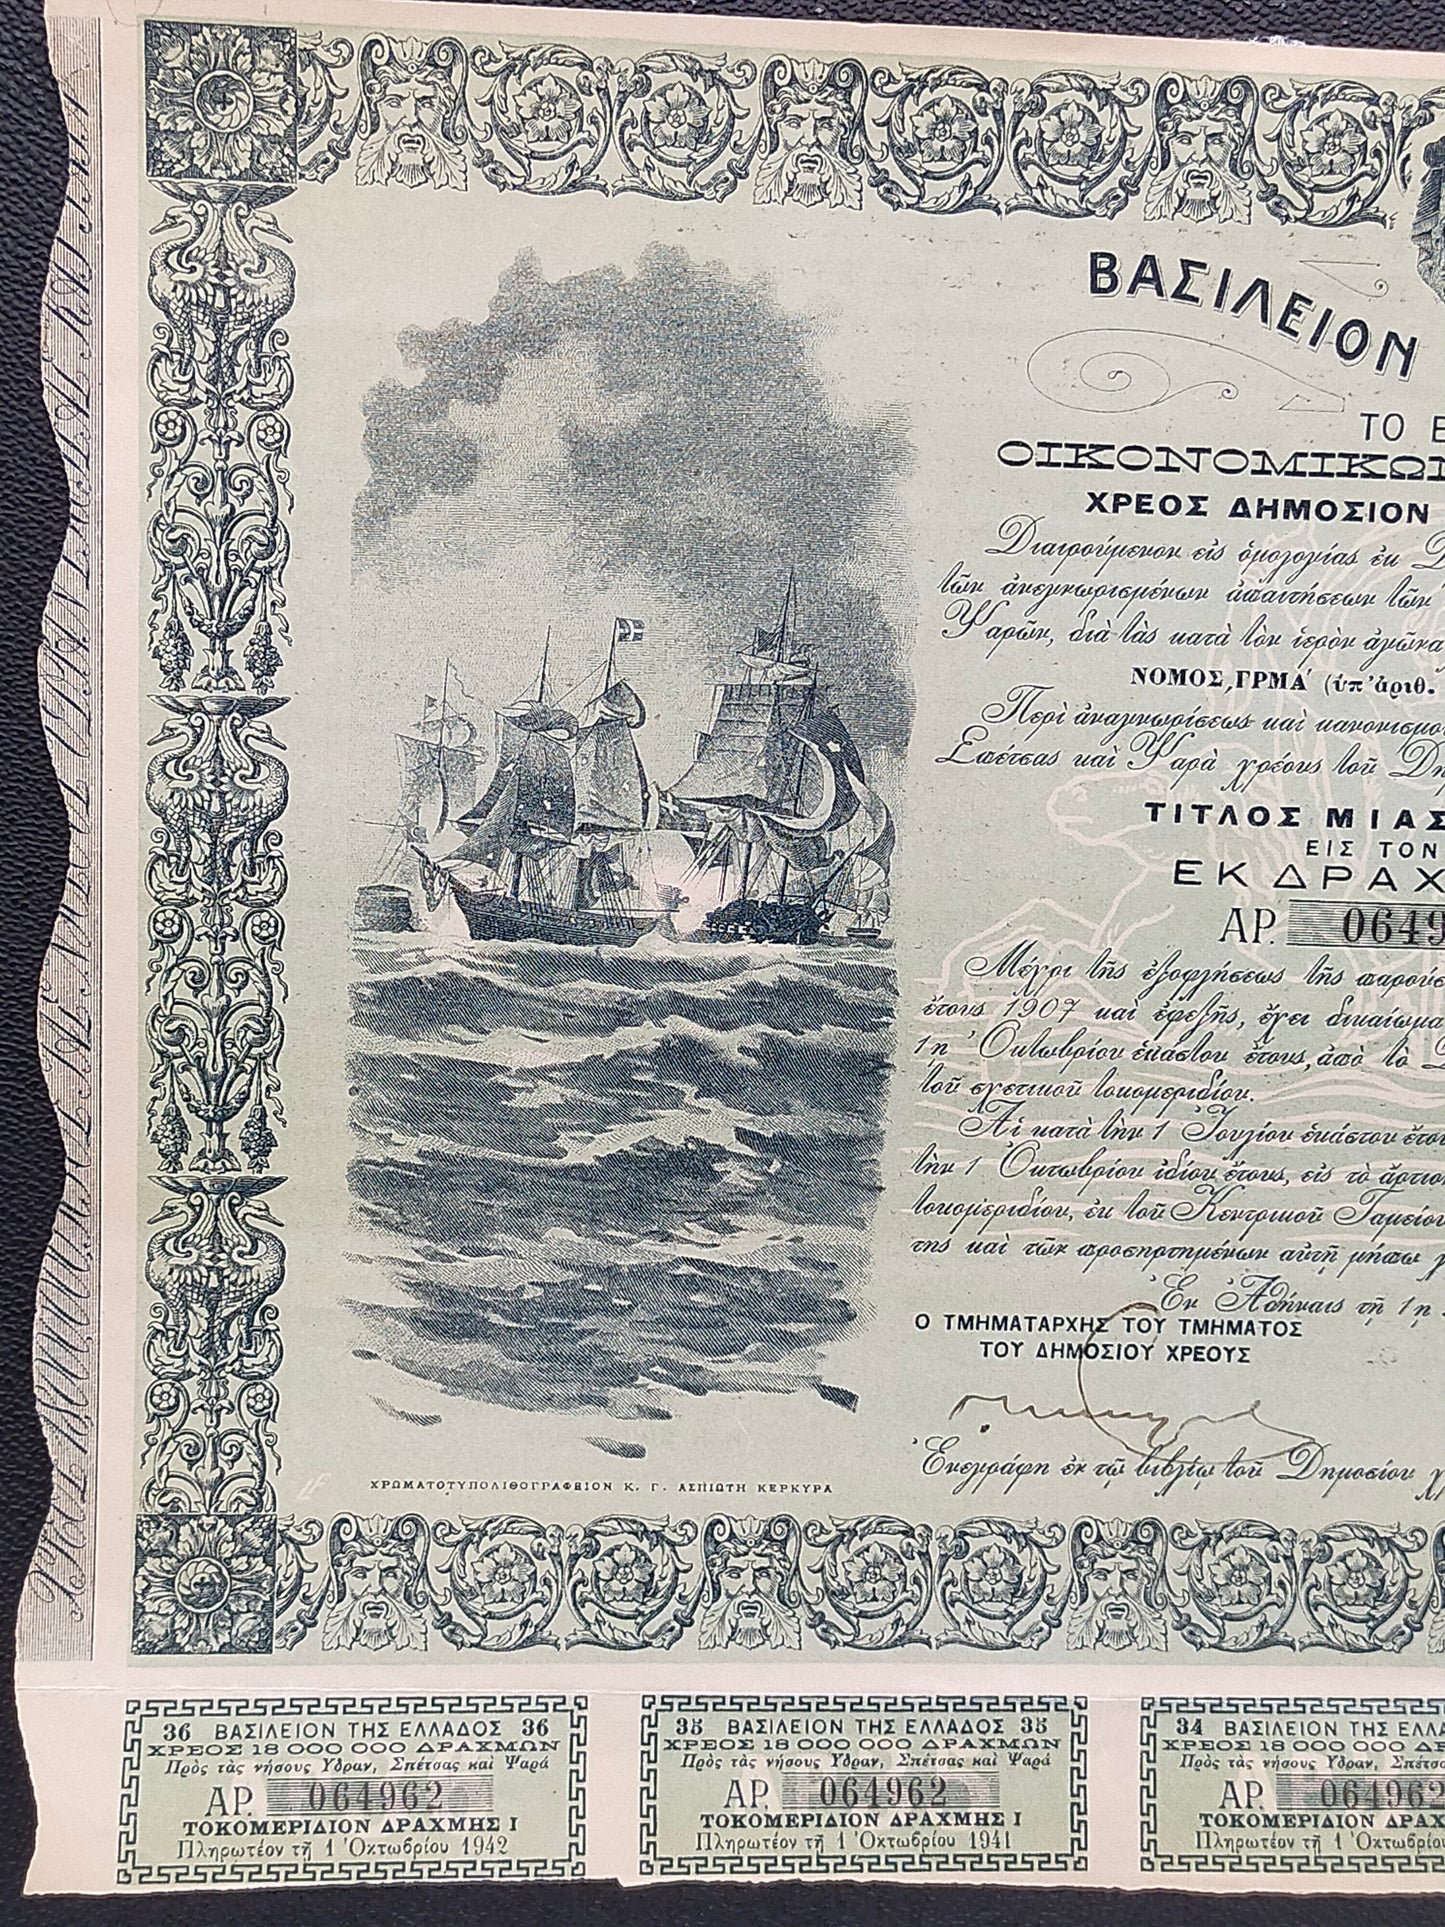 ΒΑΣΙΛΕΙΟΝ
ΤΟ Ε
ΟΙΚΟΝΟΜΙΚΩΝ
ΧΡΕΟΣ ΔΗΜΟΣΙΟΝ
Διαιρούμενον εἰς ὁμολογίας ἐκ
τῶν ἀνεγνωρισμένων ἀπαιτήσεων τῶν
Ψαρῶν, διὰ τὰς κατὰ τὸν ἱερὸν ἀγῶνα
ΝΟΜΟΣ ͵ΓΡΜΑ΄ (ὑπ' ἀριθ.
Περὶ ἀναγνωρίσεως καὶ κανονισμο
Σπέτσας καὶ Ψαρὰ χρέους τοῦ Δη
ΤΙΤΛΟΣ ΜΙΑΣ
ΕΙΣ ΤΟΝ
ΕΚ ΔΡΑΧ
ΑΡ. 0649
Μέχρι τῆς ἐξοφλήσεως τῆς παρούσ
ἔτους 1907 καὶ ἐφεξῆς, ἔχει δικαίωμα
1η Ὀκτωβρίου ἑκάστου ἔτους, ἀπὸ τὸ
τοῦ σχετικοῦ τοκομεριδίου.
Αἱ κατὰ τὴν 1 Ἰουλίου ἑκάστου ἔτου
τὴν 1 Ὀκτωβρίου ἰδίου ἔτους, εἰς τὸ ἄρτιο
τοκομεριδίου, ἐκ τοῦ Κεντρικοῦ Ταμείου
της καὶ τῶν προσηρτημένων αὐτῇ μήπω
Ἐν Ἀθήναις τῇ 1η
Ο ΤΜΗΜΑΤΑΡΧΗΣ ΤΟΥ ΤΜΗΜΑΤΟΣ
ΤΟΥ ΔΗΜΟΣΙΟΥ ΧΡΕΟΥΣ
Ἐνεγράφη ἐν τῷ βιβλίῳ τοῦ Δημοσίου χ
ΧΡΩΜΑΤΟΤΥΠΟΛΙΘΟΓΡΑΦΕΙΟΝ Κ. Γ. ΑΣΠΙΩΤΗ ΚΕΡΚΥΡΑ
36 ΒΑΣΙΛΕΙΟΝ ΤΗΣ ΕΛΛΑΔΟΣ 36
ΧΡΕΟΣ 18 000 000 ΔΡΑΧΜΩΝ
Πρὸς τὰς νήσους Ὕδραν, Σπέτσας καὶ Ψαρά
ΑΡ. 064962
ΤΟΚΟΜΕΡΙΔΙΟΝ ΔΡΑΧΜΗΣ Ι
Πληρωτέον τῇ 1 Ὀκτωβρίου 1942
35 ΒΑΣΙΛΕΙΟΝ ΤΗΣ ΕΛΛΑΔΟΣ 35
ΧΡΕΟΣ 18 000 000 ΔΡΑΧΜΩΝ
Πρὸς τὰς νήσους Ὕδραν, Σπέτσας καὶ Ψαρά
ΑΡ. 064962
ΤΟΚΟΜΕΡΙΔΙΟΝ ΔΡΑΧΜΗΣ Ι
Πληρωτέον τῇ 1 Ὀκτωβρίου 1941
34 ΒΑΣΙΛΕΙΟΝ ΤΗΣ ΕΛΛΑ
ΧΡΕΟΣ 18 000 000 ΔΡ
Πρὸς τὰς νήσους Ὕδραν, Σπέτσα
ΑΡ. 064962
ΤΟΚΟΜΕΡΙΔΙΟΝ ΔΡΑΧ
Πληρωτέον τῇ 1 Ὀκτωβρίου